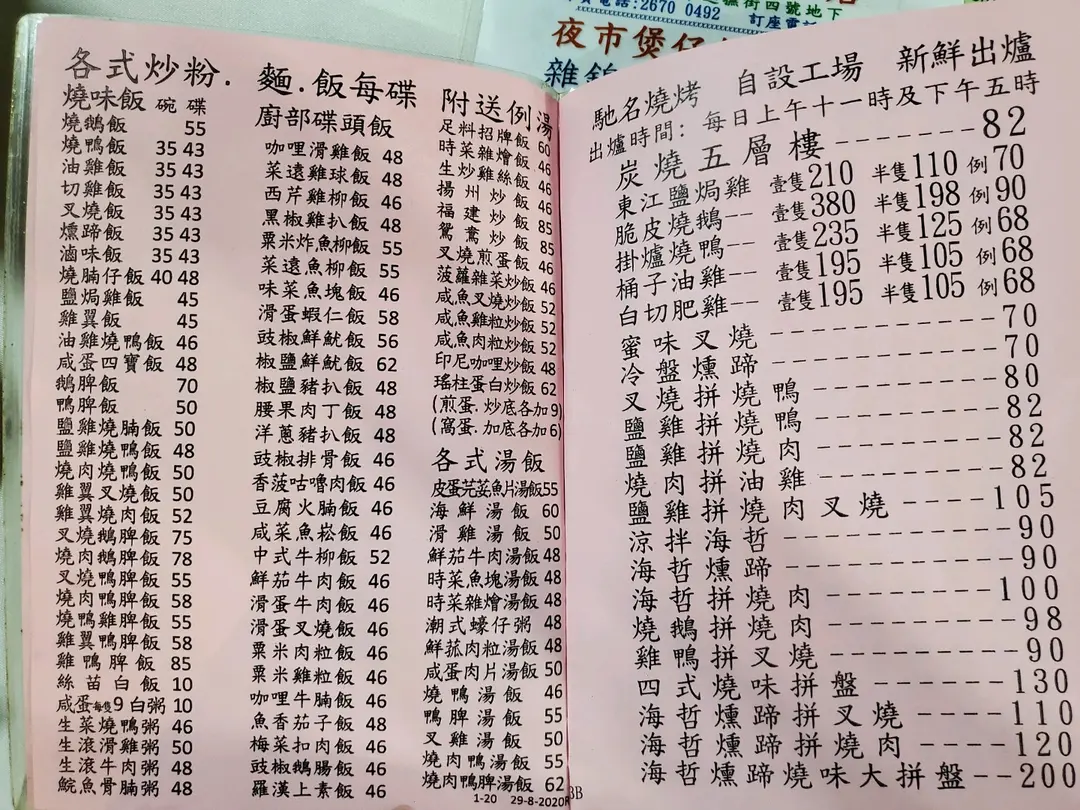 電話:2670 0492 訂座電話
街四號地下
夜市煲仔
各式炒粉.麵.飯每碟
燒味飯 碗 碟
燒鵝飯 55
燒鴨飯 35 43
油雞飯 35 43
切雞飯 35 43
叉燒飯 35 43
燻蹄飯 35 43
滷味飯 35 43
燒腩仔飯 40 48
鹽焗雞飯 45
雞翼飯 45
油雞燒鴨飯 46
咸蛋四寶飯 48
鵝脾飯 70
鴨脾飯 50
鹽雞燒腩飯 50
鹽雞燒鴨飯 48
燒肉燒鴨飯 50
雞翼叉燒飯 50
雞翼燒肉飯 52
叉燒鵝脾飯 75
燒肉鵝脾飯 78
叉燒鴨脾飯 55
燒肉鴨脾飯 58
燒鴨雞脾飯 55
雞翼鴨脾飯 58
雞鴨脾飯 85
絲苗白飯 10
咸蛋每隻9 白粥 10
生菜燒鴨粥 46
生滾滑雞粥 50
生滾牛肉粥 48
鯇魚骨腩粥 48
廚部碟頭飯
咖哩滑雞飯 48
菜遠雞球飯 48
西芹雞柳飯 46
黑椒雞扒飯 48
粟米炸魚柳飯 55
菜遠魚柳飯 55
味菜魚塊飯 46
滑蛋蝦仁飯 58
豉椒鮮魷飯 56
椒鹽鮮魷飯 62
椒鹽豬扒飯 48
腰果肉丁飯 48
洋蔥豬扒飯 48
豉椒排骨飯 46
香菠咕嚕肉飯 46
豆腐火腩飯 46
咸菜魚崧飯 46
中式牛柳飯 52
鮮茄牛肉飯 46
滑蛋牛肉飯 46
滑蛋叉燒飯 46
粟米肉粒飯 46
粟米雞粒飯 46
咖哩牛腩飯 46
魚香茄子飯 48
梅菜扣肉飯 46
豉椒鵝腸飯 46
羅漢上素飯 46
附送例湯
足料招牌飯 60
時菜雜燴飯 46
生炒雞絲飯 46
揚州炒飯 46
福建炒飯 85
鴛鴦炒飯 85
叉燒煎蛋飯 46
菠蘿雜菜炒飯 46
咸魚叉燒炒飯 52
咸魚雞粒炒飯 52
咸魚肉粒炒飯 52
印尼咖哩炒飯 48
瑤柱蛋白炒飯 62
(煎蛋.炒底各加9)
(窩蛋.加底各加6)
各式湯飯
皮蛋芫荽魚片湯飯 55
海鮮湯飯 60
滑雞湯飯 50
鮮茄牛肉湯飯 48
時菜魚塊湯飯 48
時菜雜燴湯飯 48
潮式蠔仔粥 48
鮮菰肉粒湯飯 48
咸蛋肉片湯飯 50
燒鴨湯飯 46
鴨脾湯飯 55
叉雞湯飯 50
燒肉鴨湯飯 55
燒肉鴨脾湯飯 62
1-20 29-8-2020R
3B
馳名燒烤 自設工場 新鮮出爐
出爐時間:每日上午十一時及下午五時
炭燒五層樓------82
東江鹽焗雞 壹隻210 半隻110 例70
脆皮燒鵝-- 壹隻380 半隻198 例90
掛爐燒鴨-- 壹隻235 半隻125 例68
桶子油雞-- 壹隻195 半隻105 例68
白切肥雞-- 壹隻195 半隻105 例68
蜜味叉燒----------70
冷盤燻蹄----------70
叉燒拼燒鴨--------80
鹽雞拼燒鴨--------82
鹽雞拼燒肉--------82
燒肉拼油雞--------82
鹽雞拼燒肉叉燒----105
涼拌海哲----------90
海哲燻蹄----------90
海哲拼燒肉--------100
燒鵝拼燒肉--------98
雞鴨拼叉燒--------90
四式燒味拼盤------130
海哲燻蹄拼叉燒----110
海哲燻蹄拼燒肉----120
海哲燻蹄燒味大拼盤--200